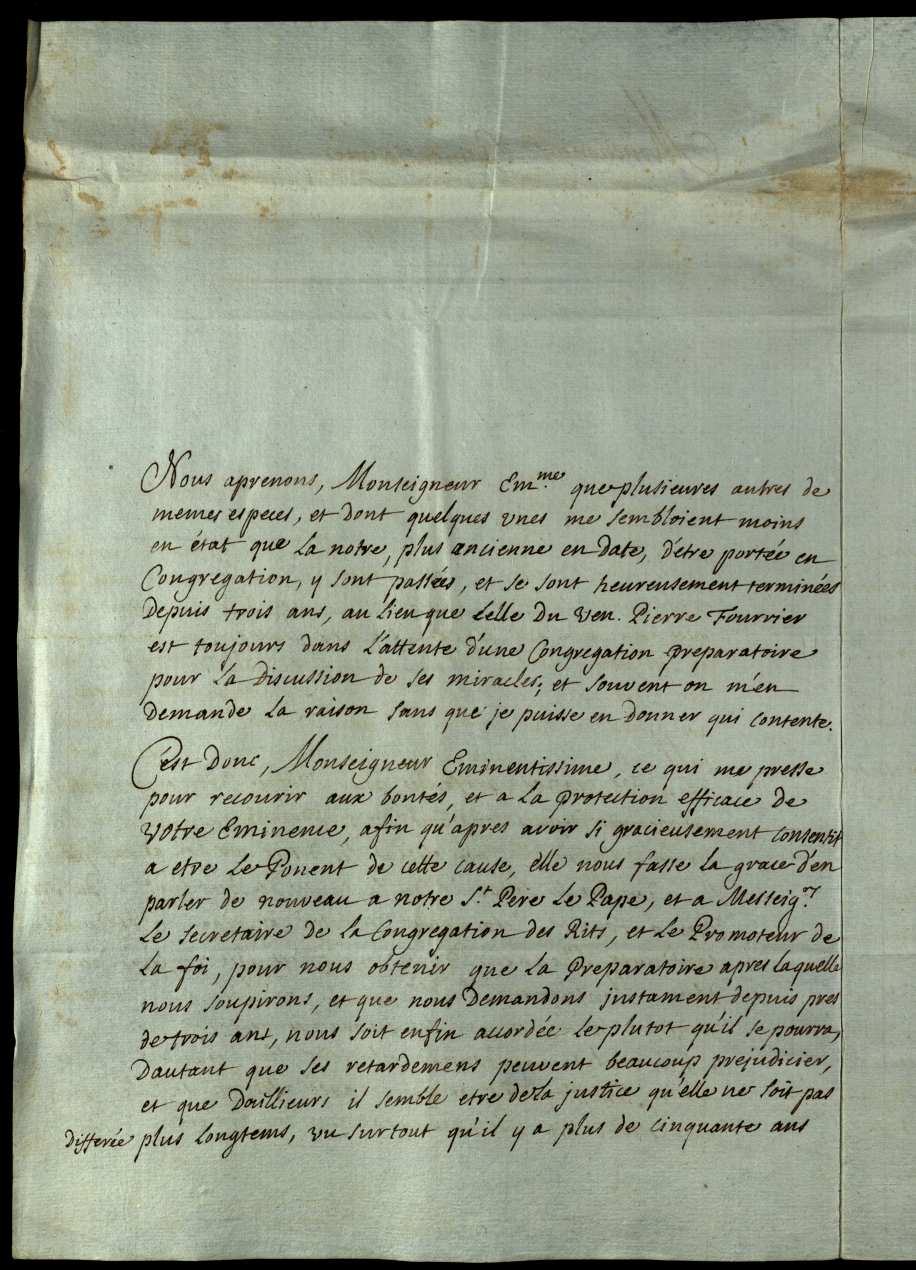 Nous aprenons, Monseigneur Em.me que plusieures autres de
memes especes, et dont quelques unes me sembloient moins
en état que la notre, plus ancienne en date, d'être portée en
Congregation, y sont passées, et se sont heureusement terminées
Depuis trois ans, au lieu que celle du Ven. Pierre Fourrier
est toujours dans l'attente d'une Congregation preparatoire
pour la Discussion de ses miracles; et souvent on m'en
Demande la raison sans que je puisse en donner qui contente.
C'est Donc, Monseigneur Eminentissime, ce qui me presse
pour recourir aux bontés, et a la protection efficace de
Votre Eminence, afin qu'apres avoir si gracieusement consenti
a etre le Ponent de cette cause, elle nous fasse la grace d'en
parler de nouveau a notre St. Pere le Pape, et a Messeig.rs
le secretaire de la Congregation des Rits, et le Promoteur de
la foi, pour nous obtenir que la Preparatoire apres laquelle
nous soupirons, et que nous Demandons justament depuis pres
de trois ans, nous soit enfin accordée le plutot qu'il se pourra,
Dautant que ses retardemens peuvent beaucoup prejudicier,
et que Daillieurs il semble etre de la justice qu'elle ne soit pas
Differée plus longtems, vu surtout qu'il y a plus de cinquante ans